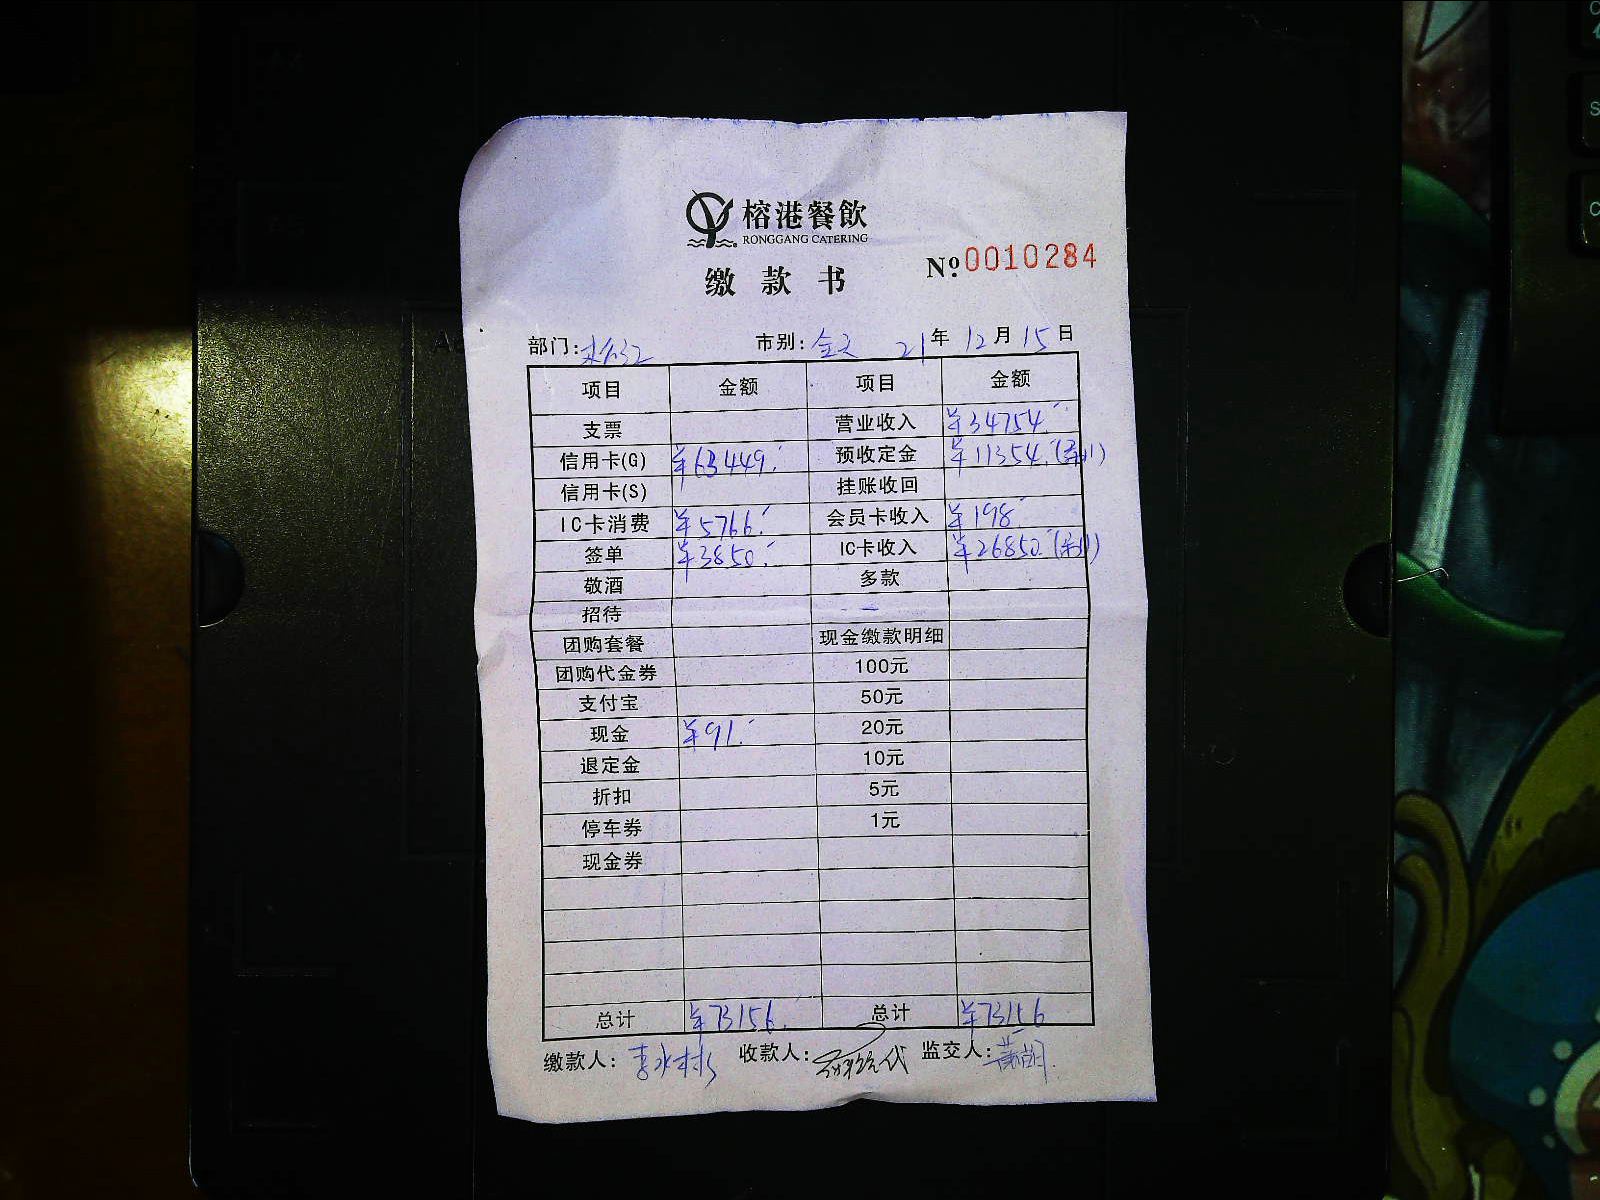 榕港餐飲
RONGGANG CATERING
№:0010284
缴款书
部门: 市别:全天 21年12月15日
项目 金额 项目 金额
支票 营业收入 ¥34754.
信用卡(G) ¥63449. 预收定金 ¥11354.
信用卡(S) 挂账收回
IC卡消费 ¥5766. 会员卡收入 ¥198.
签单 ¥3850. IC卡收入 ¥26850.
敬酒 多款
招待
团购套餐 现金缴款明细
团购代金券 100元
支付宝 50元
现金 ¥91. 20元
退定金 10元
折扣 5元
停车券 1元
现金券
总计 ¥73156. 总计 ¥73156
缴款人: 收款人: 监交人: